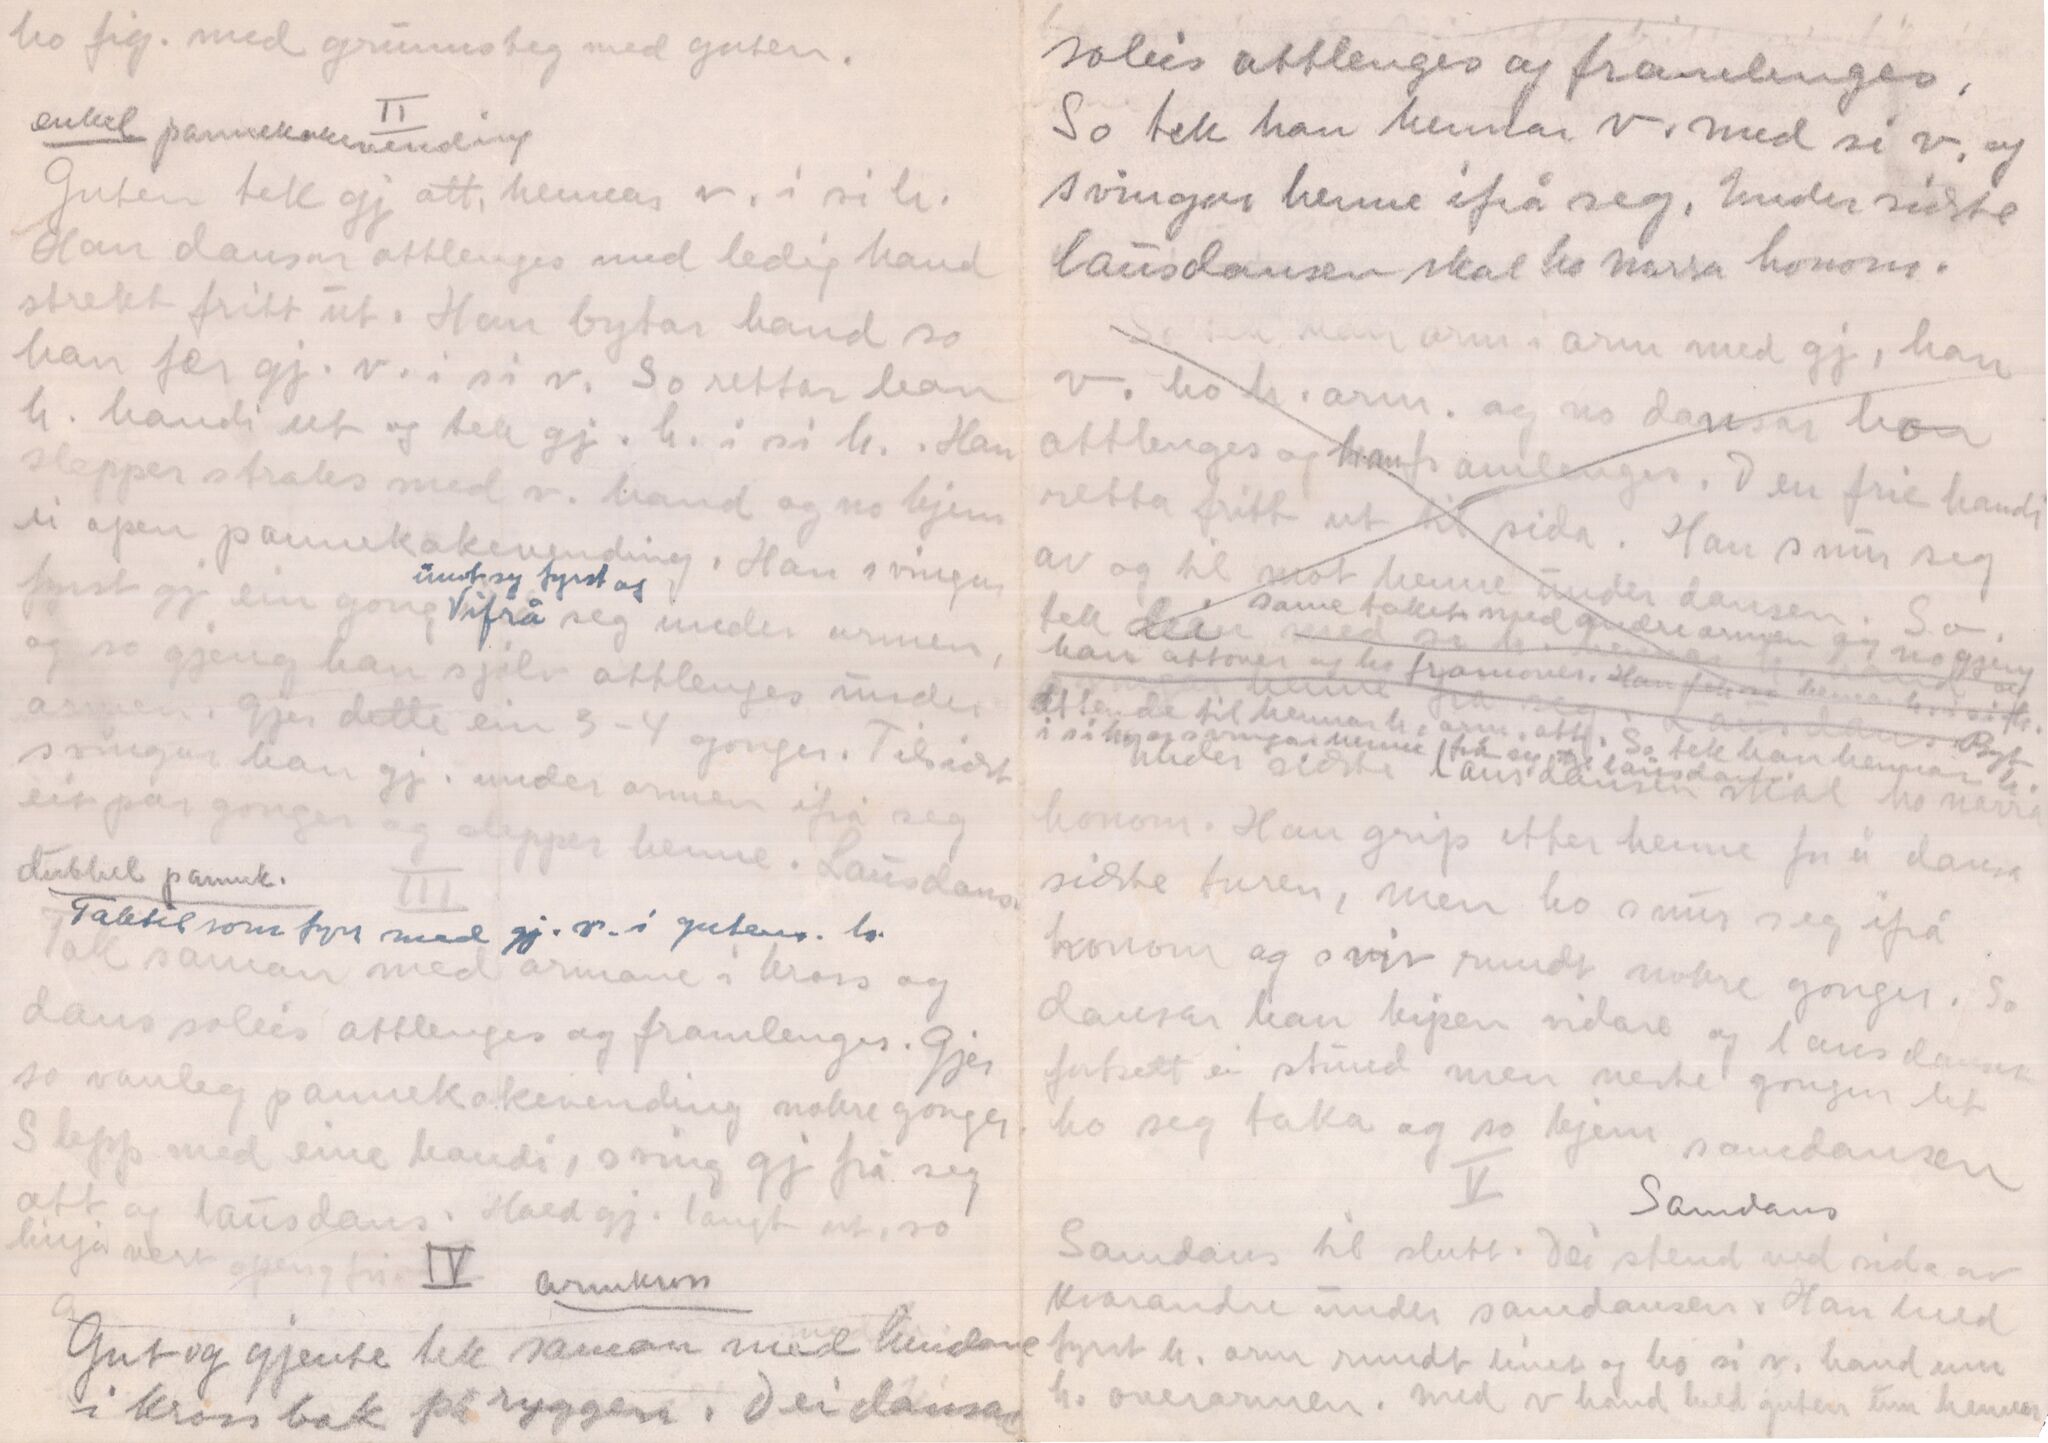 ho fig. med grunnsteg med guten.
II
enkel pannekakevending
Guten tek gj att, hennar v. i si h.
Han dansar attlenges med ledig hand
strekt fritt ut. Han bytar hand so
han fær gj. v. i si v. So rettar han
h. handi ut og tek gj. h. i si h. . Han
slepper straks med v. hand og no kjem
ei open pannekakevending. Han svingar
imot seg fyrst og
fyrst gj ein gong ifrå seg under armen,
og so gjeng han sjølv attlenges under
armen. Gjer dette ein 3-4 gonger. Tilsidst
svingar han gj. under armen ifrå seg
eit par gonger og slepper henne. Lausdans.
dubbel pannk.
III
Taktil som fyrr med gj. v. i gutens h.
Tak saman med armane i kross og
dans soleis attlenges og framlenges. Gjer
so vanleg pannekakevending nokre gonger.
Slepp med eine handi, sving gj frå seg
att og lausdans. Hald gj. langt ut, so
linja vert
IV armkross
Gut og gjente tek saman med hendane
i kross bak på ryggen. Dei dansar
soleis attlenges og framlenges.
So tek han hennar v. med si v. og
svingar henne ifrå seg. Under sidste
lausdansen skal ho narra honom.
So tek han arm i arm med gj, han
v. ho h. arm. og no dansar
attlenges og framlenges. Den frie handi
retta fritt ut til sida. Han snur seg
av og til mot henne under dansen. So
same taket med andre armen og no gjeng
han attover og ho framover. Han
til hennar h. arm. att. So tek han hennar h.
i si h. og svingar henne frå seg til lausdans
under sidste lausdansen skal ho narra
honom. Han grip etter henne for å dansa
sidste turen, men ho snur seg ifrå
honom og sviv rundt nokre gonger. So
dansar han kipen vidare og lausdansen
fortsett ei stund men neste gongen let
ho seg taka og so kjem samdansen
V Samdans
Samdans til slutt. Dei stend ved sida av
kvarandre under samdansen. Han held
fyrst h. arm rundt livet og ho si v. hand um
h. overarmen. Med v hand held guten um hennar